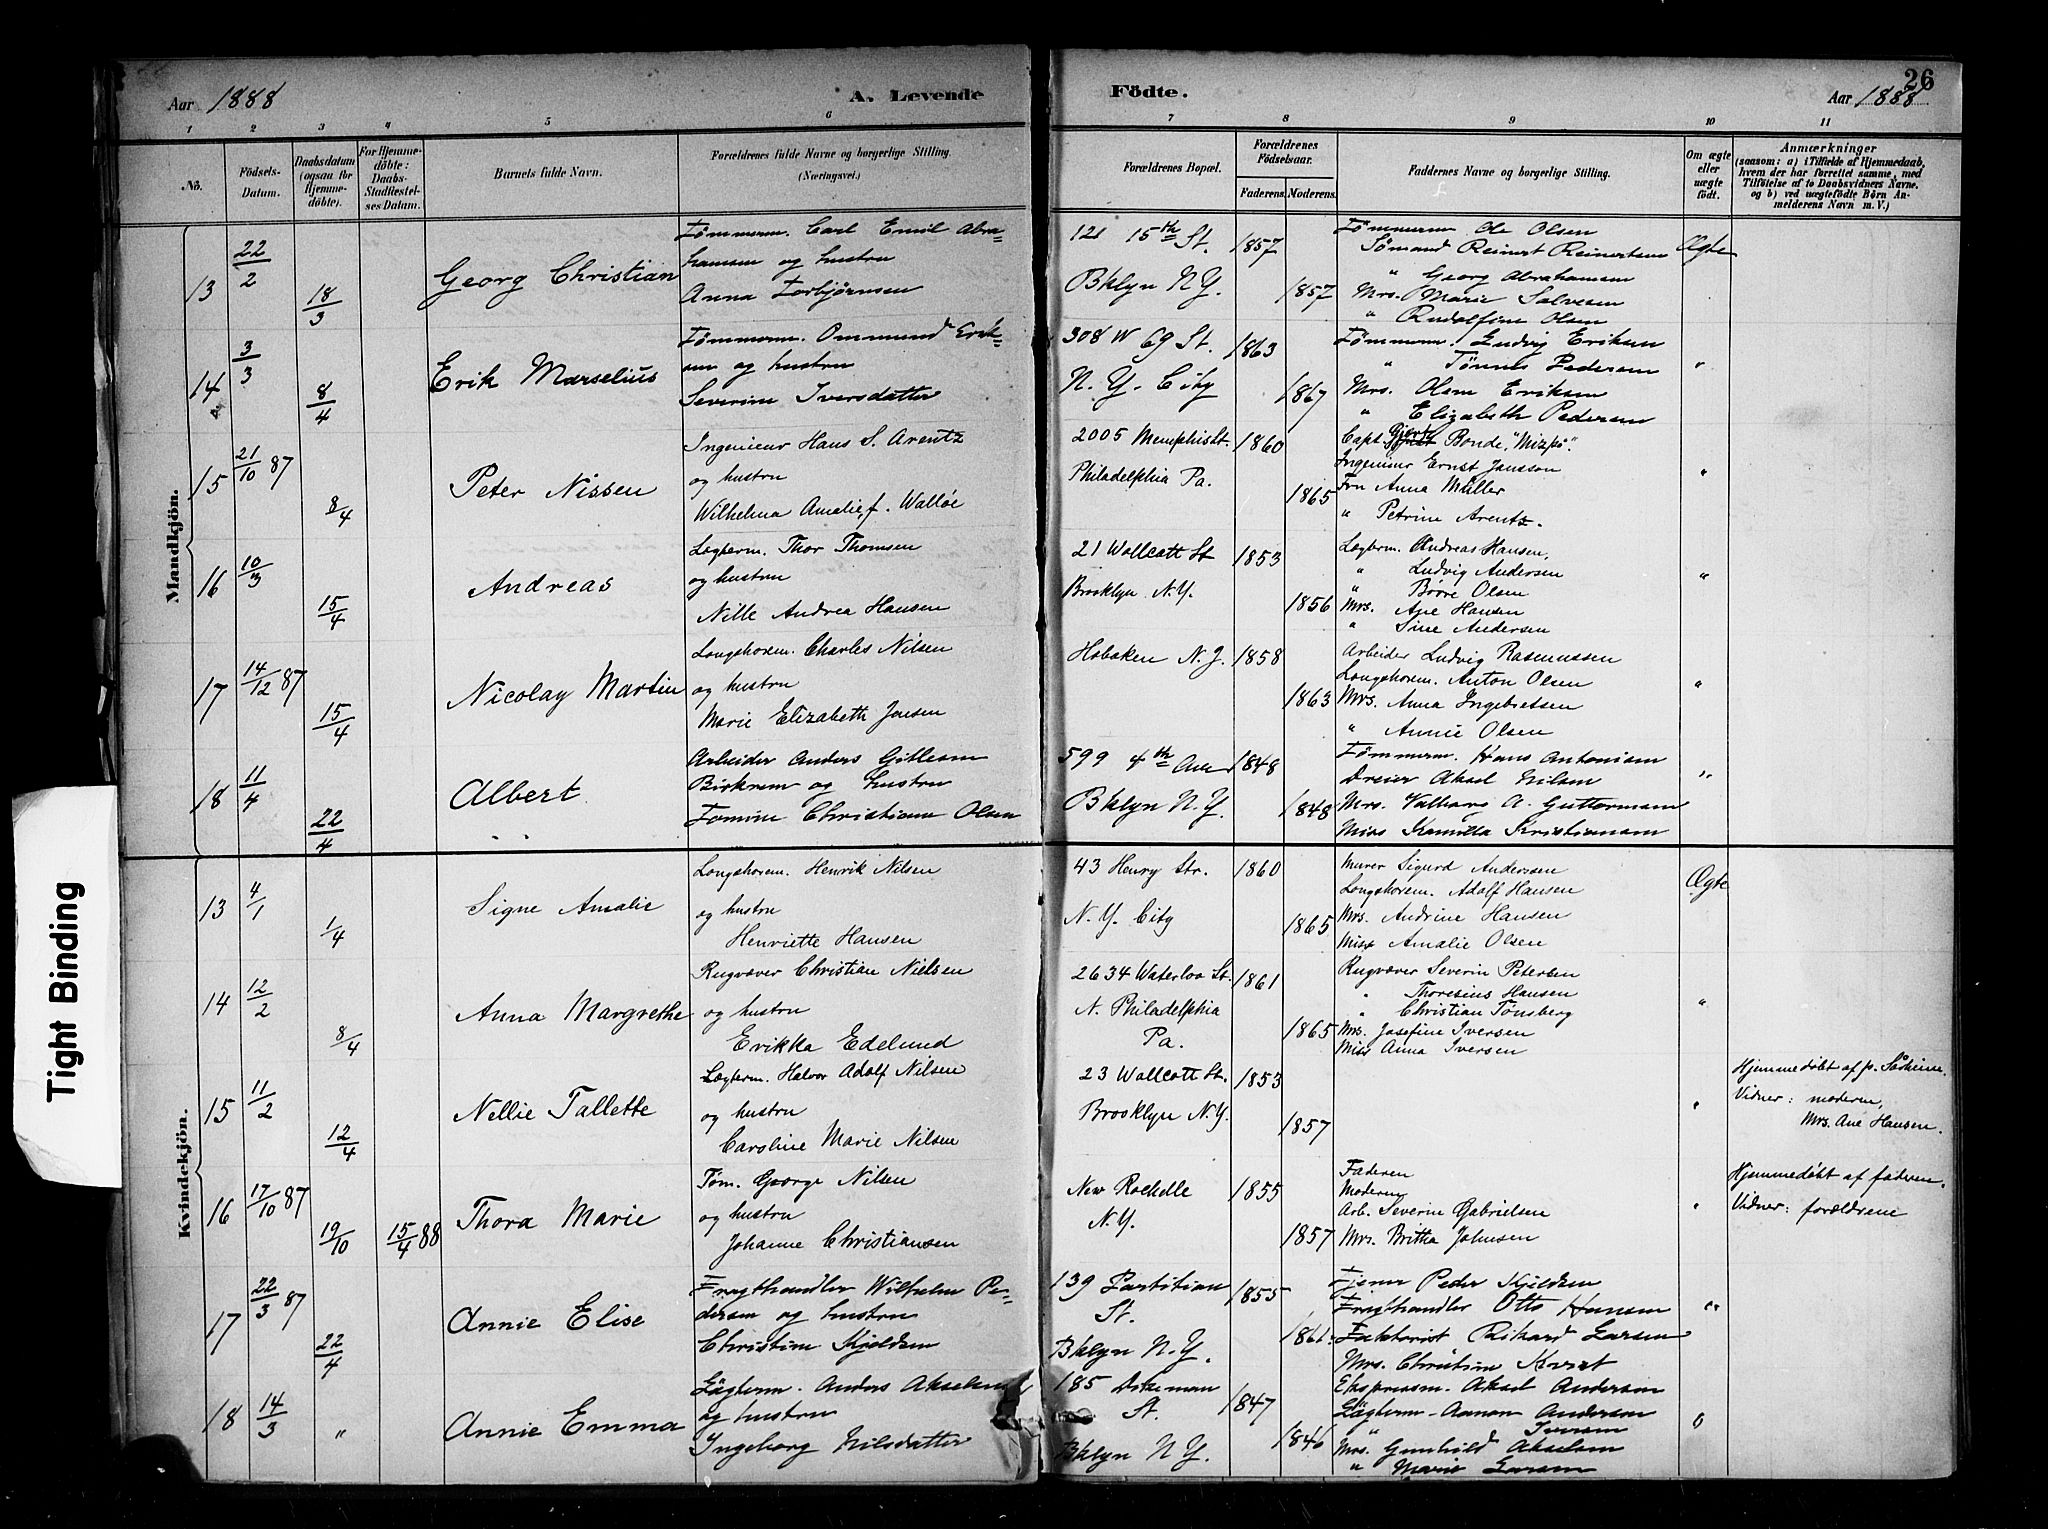 Aar 1888
A. Levende
Födte.
26
Aar 1888
1 2 3 4 5 6 7 8 9 10 11
No.
Födsels-
Datum.
Daabsdatum
(ogsaa for
Hjemme-
döbte).
For Hjemme-
döbte:
Daabs-
Stadfæstel-
ses Datum.
Barnets fulde Navn.
Forældrenes fulde Navne og borgerlige Stilling.
(Næringsvei.)
Forældrenes Bopæl.
Forældrenes
Födselsaar.
Faderens.
Moderens.
Faddernes Navne og borgerlige Stilling.
Om ægte
eller
uægte
födt.
Anmærkninger
(saasom: a) i Tilfælde af Hjemmedaab,
hvem der har forrettet samme, med
Tilföielse af to Daabsvidners Navne,
og b) ved uægtefödte Börn An-
melderens Navn m. V.)
Mandkjön.
13
22/2
18/3
Georg Christian
Tømmerm. Carl Emil Abra-
hamsen og hustru
Anna Torbjørnsen
121 15th St.
Bklyn N.Y.
1857
1857
Tømmerm Ole Olsen
Sømand Reinert Reinertsen
" Georg Abrahamsen
Mrs. Marie Salvesen
" Rudolfine Olsen
Ægte
14
3/3
8/4
Erik Marselius
Tømmerm. Ommund Erik-
sen og hustru
Severine Iversdatter
308 W 69 St.
N.Y. City
1863
1867
Tømmerm. Ludvig Eriksen
" Tønnes Pedersen
Mrs. Olene Eriksen
" Elizabeth Pedersen
"
15
21/10 87
8/4
Peter Nissen
Ingeniеur Hans S. Arentz
og hustru
Wilhelma Amalie, f. Walløe
2005 Memphis St.
Philadelphia Pa.
1860
1865
Capt. Bonde, "Mizpa".
Ingeniеur Ernst Jansson
Fru Anna Müller
" Petrine Arentz.
"
16
10/3
15/4
Andreas
Lægterm. Thor Thomsen
og hustru
Nille Andrea Hansen
21 Wollcott St
Brooklyn N.Y.
1853
1856
Lægterm. Andreas Hansen,
" Ludvig Andersen
" Børre Olsen
Mrs. Ane Hansen
" Sine Andersen
"
17
14/12 87
15/4
Nicolay Martin
Longshorem. Charles Nilsen
og hustru
Marie Elizabeth Jensen
Hoboken N.J.
1858
1863
Arbeider Ludvig Rasmussen
Longshorem. Anton Olsen
Mrs. Anna Ingebretsen
" Annie Olsen
"
18
11/4
22/4
Albert
Arbeider Anders Gitlesen
Birkrem og hustru
Tomine Christiane Olsen
599 4th Ave
Bklyn N.Y.
1848
1848
Tømmerm. Hans Antonisen
Dreier Aksel Nilsen
Mrs. Valborg A. Guttormsen
Miss Kamilla Kristiansen
"
Kvindekjön.
13
4/1
1/4
Signe Amalie
Longshorem. Henrik Nilsen
og hustru
Henriette Hansen
43 Henry Str.
N.Y. City
1860
1865
Murer Sigurd Andersen
Longshorem. Adolf Hansen
Mrs. Andrine Hansen
Miss Amalie Olsen
Ægte
14
12/2
8/4
Anna Margrethe
Rugvæver Christian Nielsen
og hustru
Erikka Edelund
2634 Waterloo St.
N. Philadelphia
Pa.
1861
1865
Rugvæver Severin Petersen
" Thoresius Hansen
" Christian Tønsberg
Mrs. Josefine Iversen
Miss Anna Iversen
"
15
11/2
12/4
Nellie Tallette
Lægterm. Halvor Adolf Nilsen
og hustru
Caroline Marie Nilsen
23 Wollcott St.
Brooklyn N.Y.
1853
1857
"
Hjemmedøbt af p. Såheim.
Vidner: moderen,
Mrs. Ane Hansen.
16
17/10 87
19/10
15/4 88
Thora Marie
Tøm. George Nilsen
og hustru
Johanne Christiansen
New Rochelle
N.Y.
1855
1857
Faderen
Moderen
Arb. Severin Gabrielsen
Mrs. Britha Johnsen
"
Hjemmedøbt af faderen.
Vidner: forældrene
17
22/3 87
22/4
Annie Elise
Frugthandler Wilhelm Pe-
dersen og hustru
Christine Kjeldsen
139 Partition
St.
Bklyn N.Y.
1855
1861
Tjener Peder Kjeldsen
Frugthandler Otto Hansen
Faktorist Rikard Larsen
Mrs. Christine
"
18
14/3
"
Annie Emma
Lägterm. Anders Akselsen
og hustru
Ingeborg Nilsdatter
185
St.
Bklyn N.Y.
1847
1846
Ekspressm. Aksel Andersen
Lägterm. Aanon Andersen
" Iversen
Mrs. Gunhild Akselsen
" Marie Larsen
"
Tight Binding